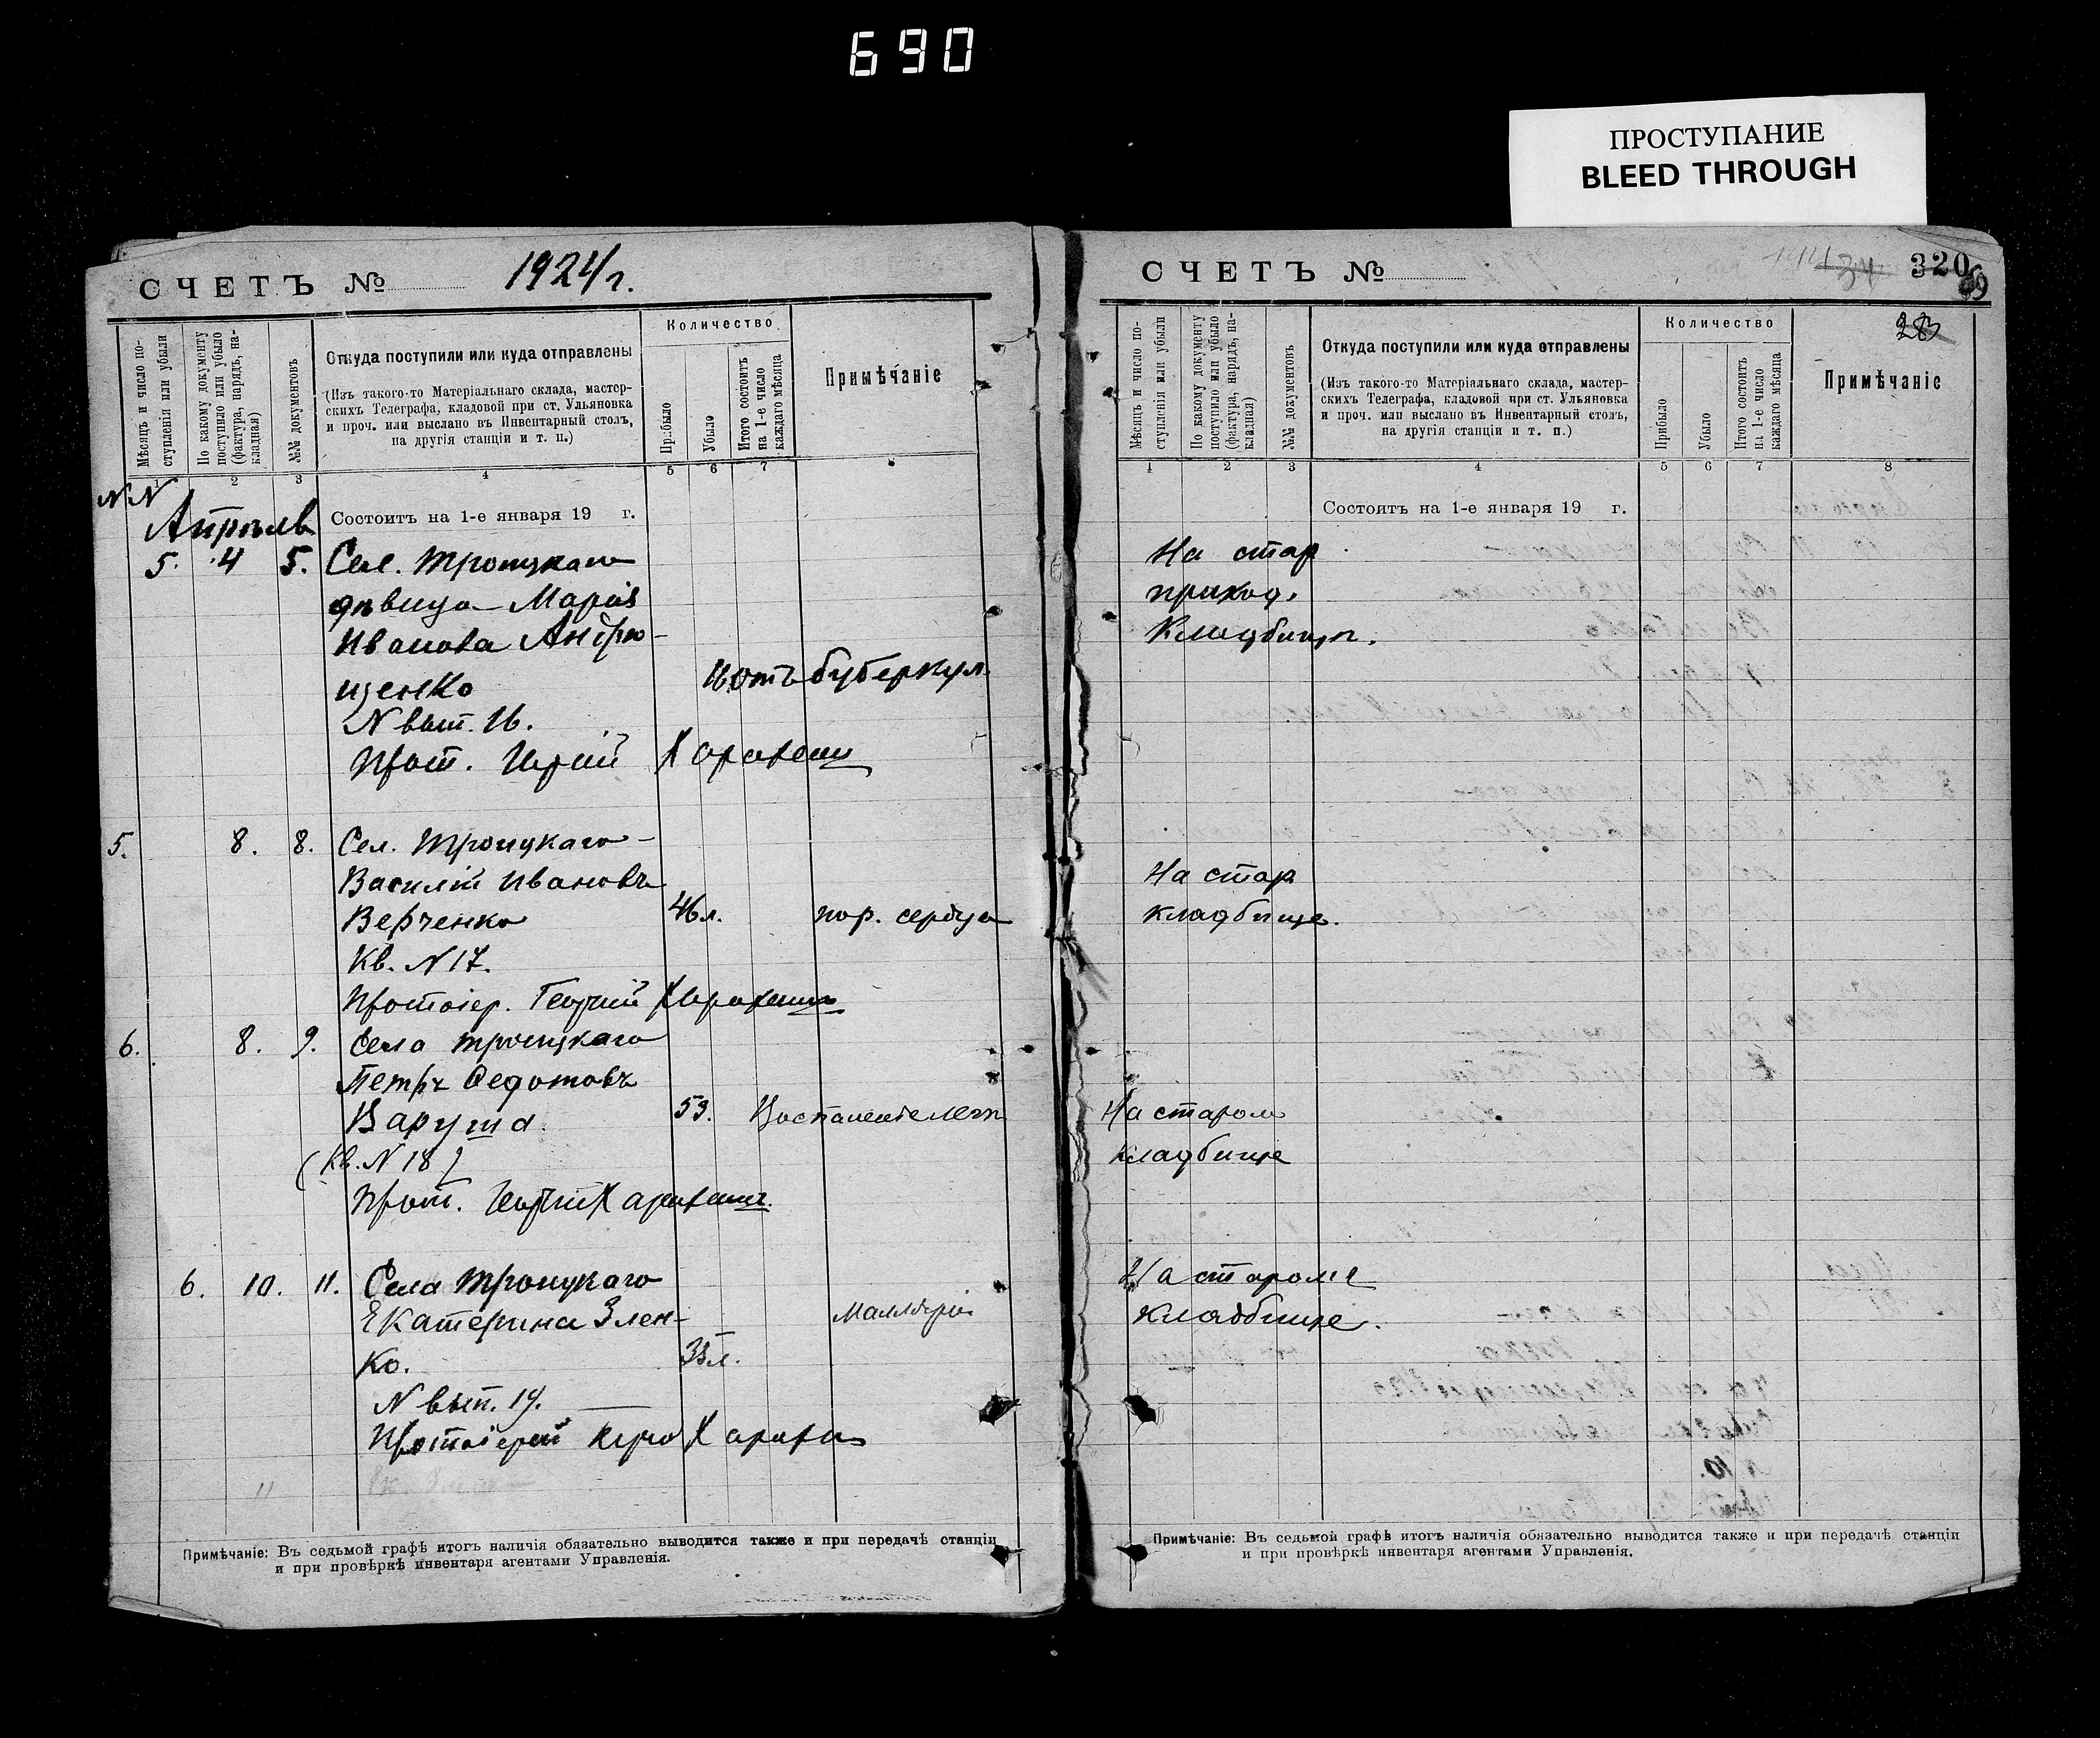 690
ПРОСТУПАНИЕ
BLEED THROUGH
СЧЕТЪ №
1924 г.
Мѣсяцъ и число поступленія или убыли
По какому документу поступило или убыло (фактура, нарядъ, накладная)
№№ документовъ
Откуда поступили или куда отправлены
(Изъ такого-то Матеріальнаго склада, мастер-
скихъ Телеграфа, кладовой при ст. Ульяновка
и проч. или выслано въ Инвентарный столъ,
на другія станціи и т. п.)
Количество
Прибыло
Убыло
Итого состоитъ на 1-е число каждаго мѣсяца
Примѣчаніе
1 2 3 4 5 6 7
N N
Апрѣль
Состоитъ на 1-е января 19 г.
5. 4 5. Сел. Троицкаго
дѣвица Марія
Иванова Андрю-
щенко
16 отъ туберкул.
N вып. 16.
Прот. Юрій
5. 8. 8. Сел. Троицкаго
Василій Ивановъ
Верченко 46 л. пор. сердца
Кв. N 17.
Протоіер. Георгій
6. 8. 9. Села Троицкаго
Петръ Федотовъ
Варуша. 53. Воспаленіе легк
(Кв. N 18)
Прот.
6. 10. 11. Села Троицкаго
Екатерина Злен-
ко. 35 л.
Маллярія
N вып. 19.
Протоіерей
Примѣчаніе: Въ седьмой графѣ итогъ наличія обязательно выводится также и при передачѣ станціи
и при провѣркѣ инвентаря агентами Управленія.
СЧЕТЪ №
34
320
69
28
Мѣсяцъ и число поступленія или убыли
По какому документу поступило или убыло (фактура, нарядъ, накладная)
№№ документовъ
Откуда поступили или куда отправлены
(Изъ такого-то Матеріальнаго склада, мастер-
скихъ Телеграфа, кладовой при ст. Ульяновка
и проч. или выслано въ Инвентарный столъ,
на другія станціи и т. п.)
Количество
Прибыло
Убыло
Итого состоитъ на 1-е число каждаго мѣсяца
Примѣчаніе
1 2 3 4 5 6 7 8
Состоитъ на 1-е января 19 г.
На стар
приход.
Кладбищѣ.
На стар
кладбище.
На старом
кладбище
На старомъ
кладбище.
Примѣчаніе: Въ седьмой графѣ итогъ наличія обязательно выводится также и при передачѣ станціи
и при провѣркѣ инвентаря агентами Управленія.